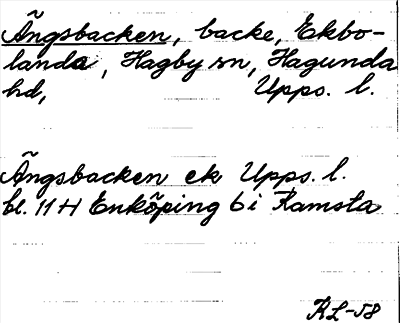 Ängsbacken, backe, Ekbo-
landa, Hagby sn, Hagunda
hd, Upps. l.
Ängsbacken ek Upps. l.
bl. 11 H Enköping 6 i Ramsta
RL-58